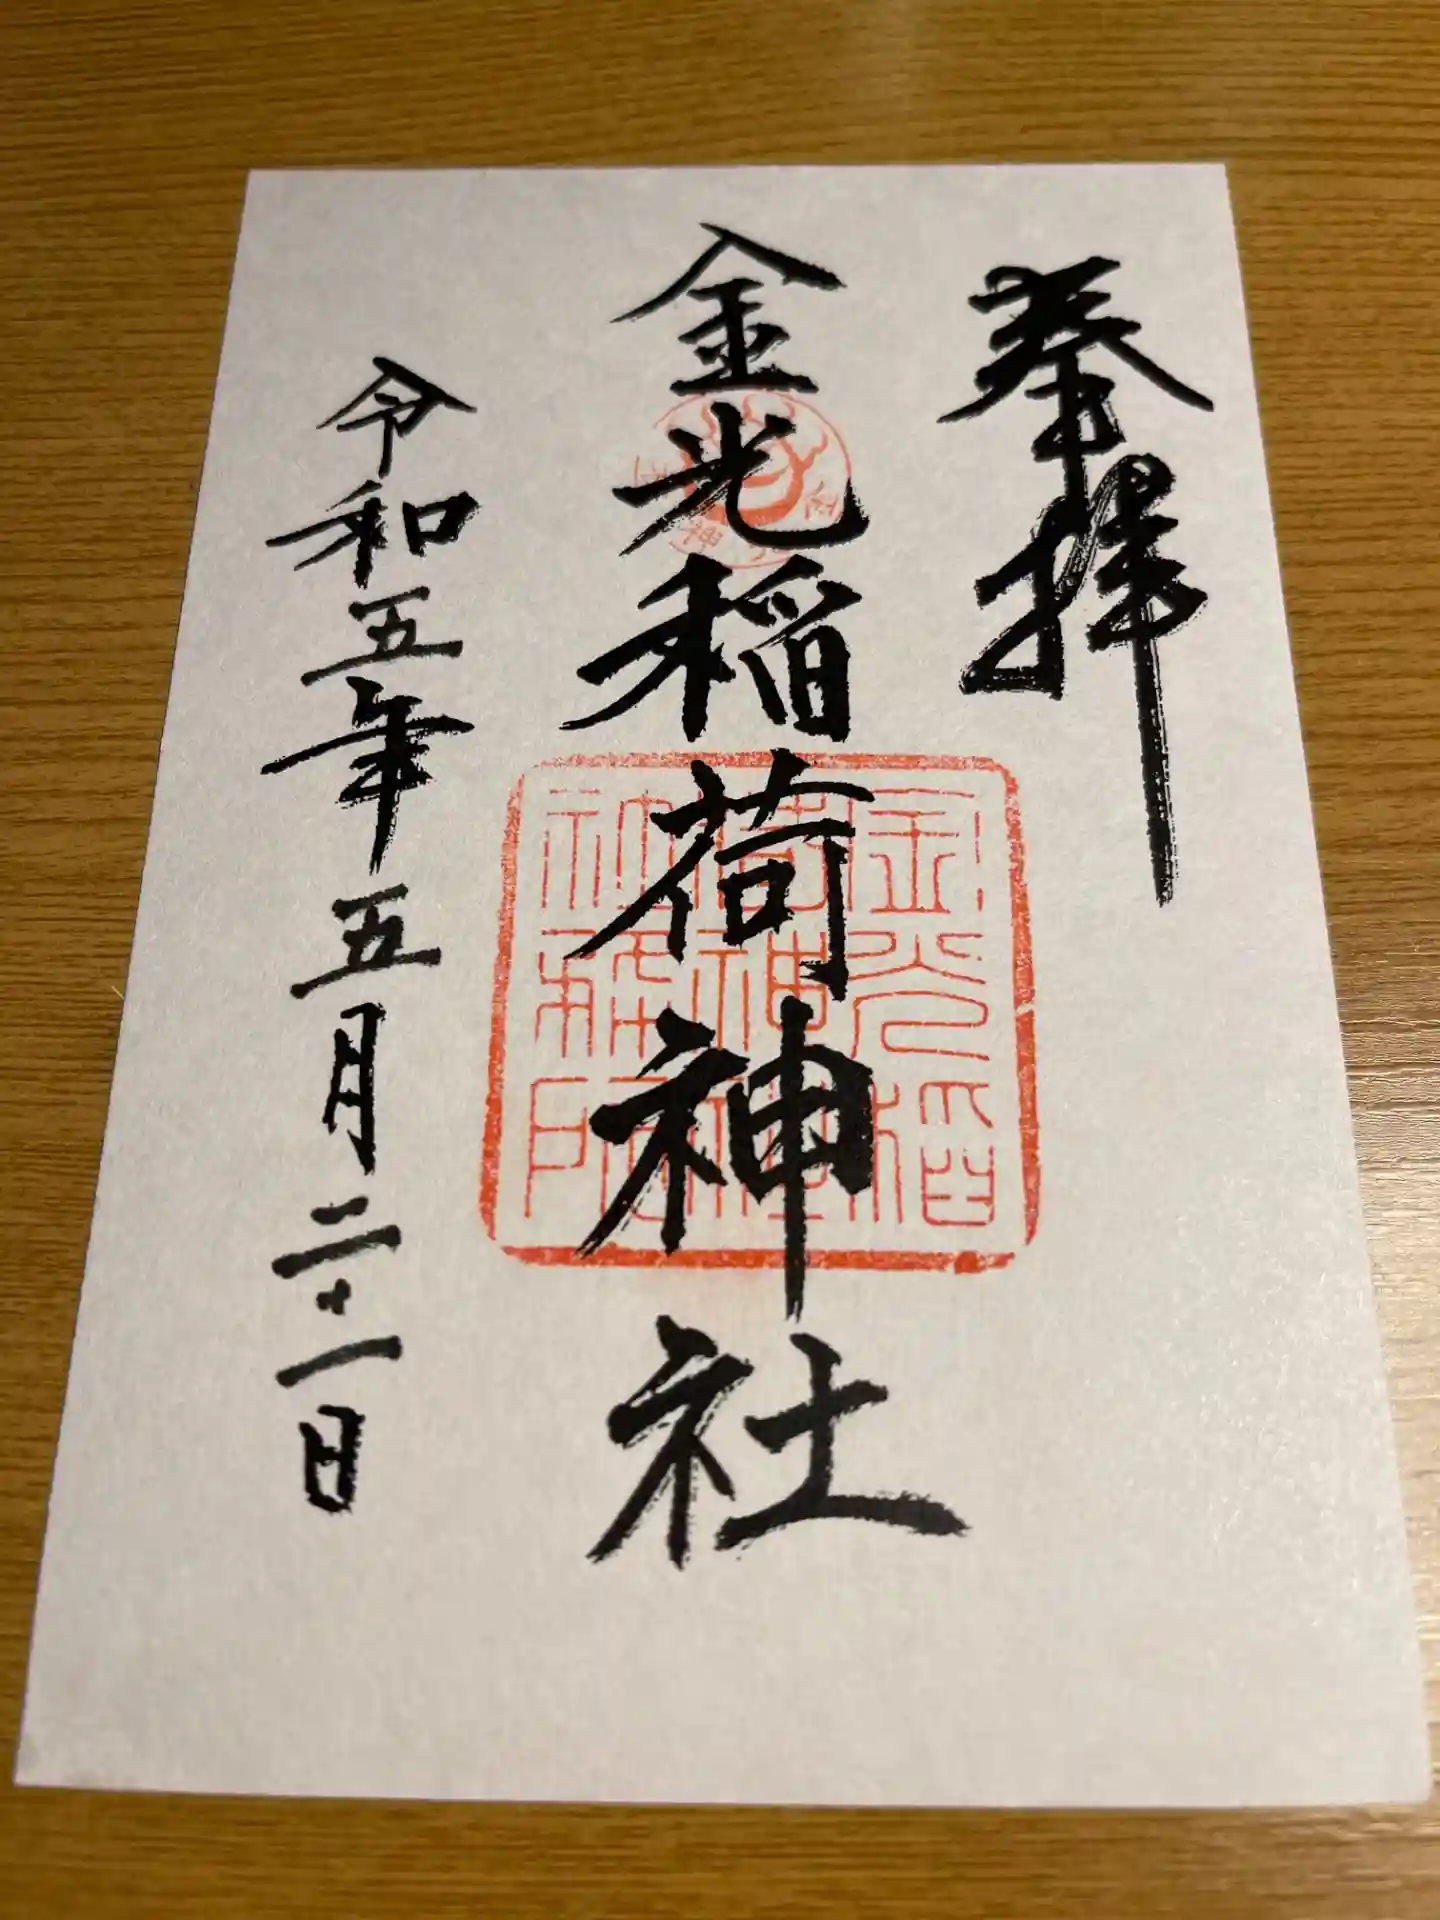 奉拝
金光稲荷神社
令和五年五月二十一日
金光稲
荷神社